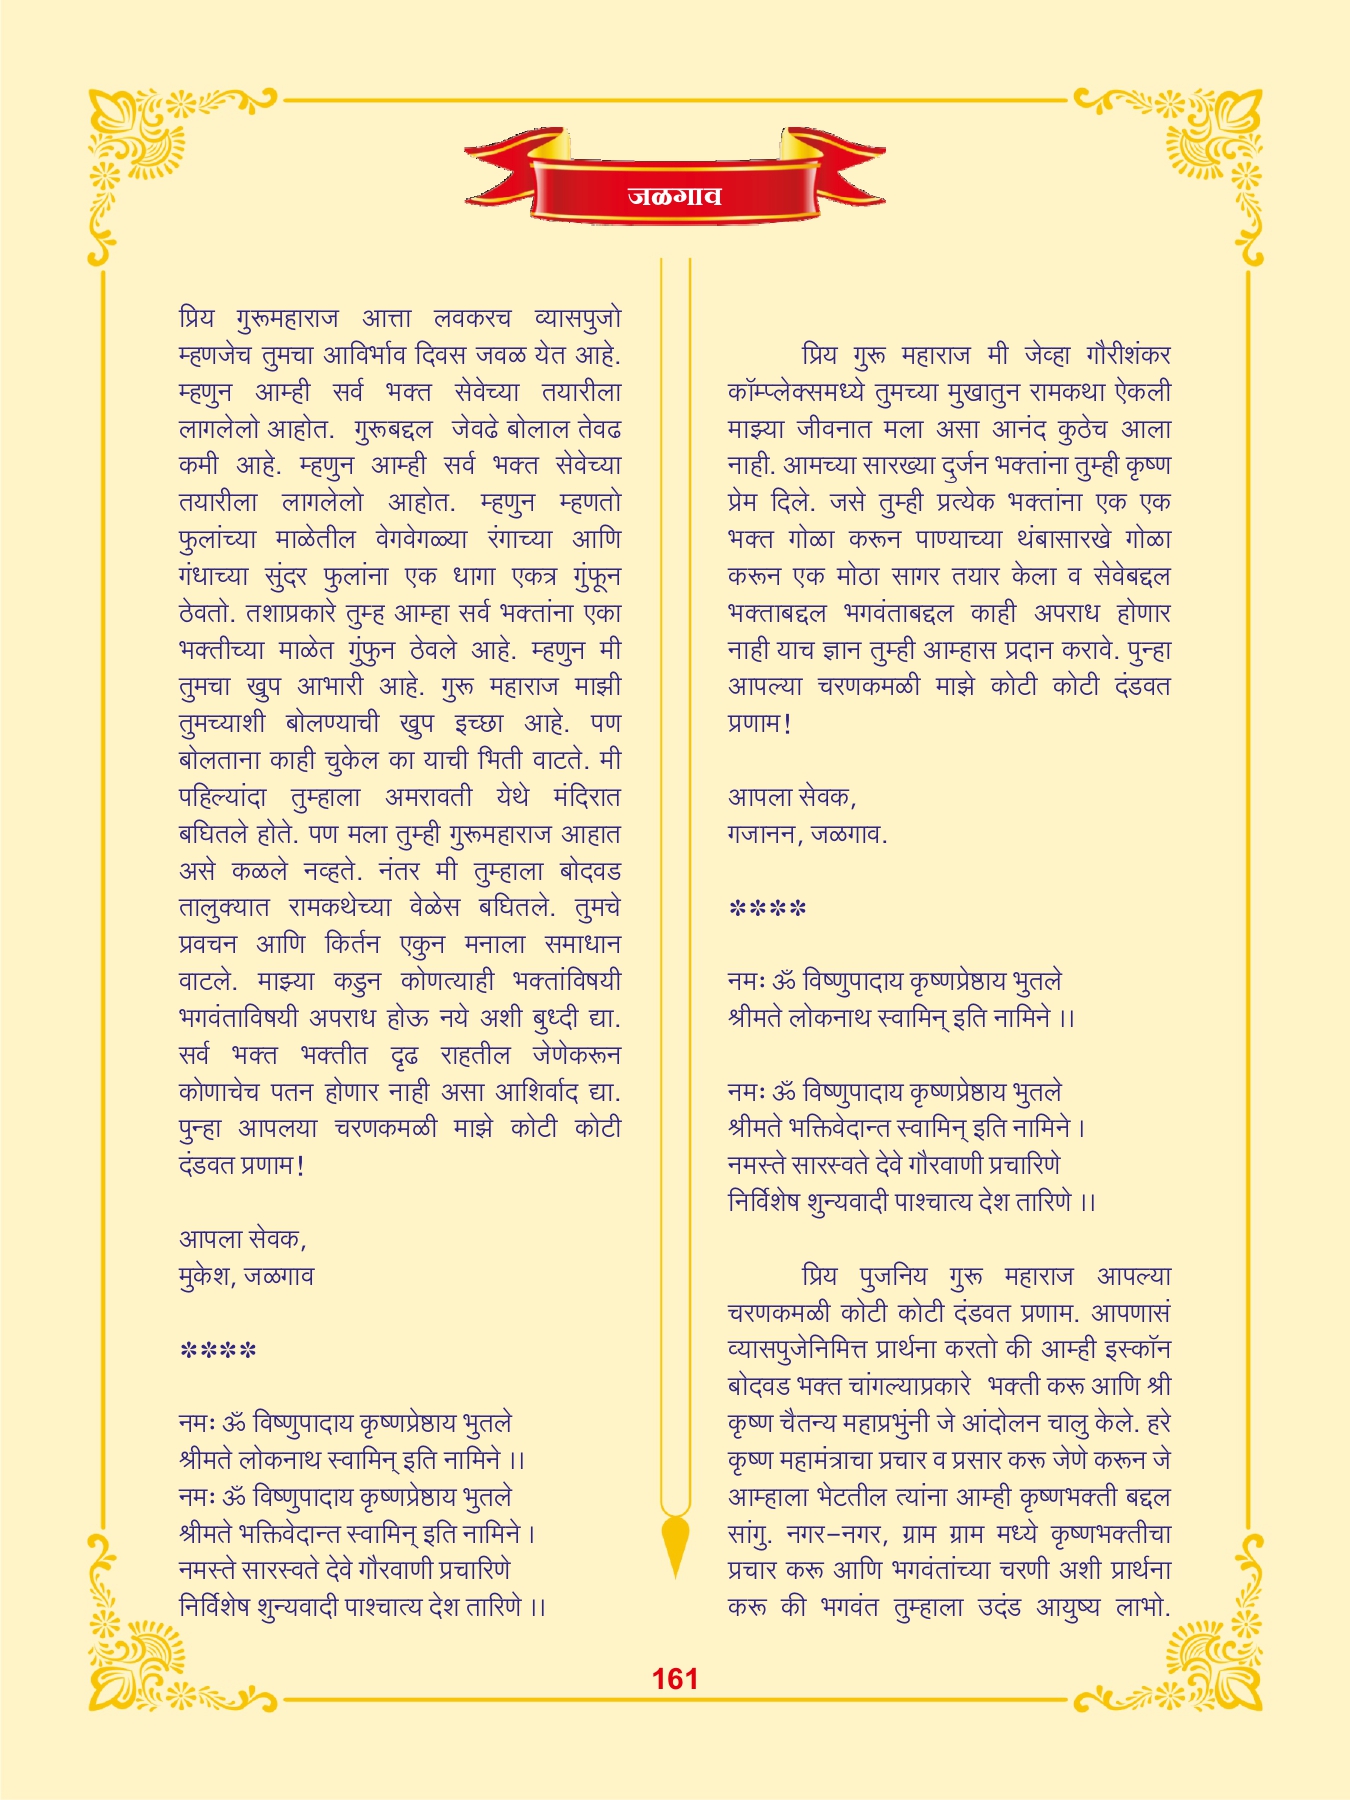 जळगाव
प्रिय गुरूमहाराज आत्ता लवकरच व्यासपुजो
म्हणजेच तुमचा आविर्भाव दिवस जवळ येत आहे.
म्हणुन आम्ही सर्व भक्त सेवेच्या तयारीला
लागलेलो आहोत. गुरूबद्दल जेवढे बोलाल तेवढ
कमी आहे. म्हणुन आम्ही सर्व भक्त सेवेच्या
तयारीला लागलेलो आहोत. म्हणुन म्हणतो
फुलांच्या माळेतील वेगवेगळ्या रंगाच्या आणि
गंधाच्या सुंदर फुलांना एक धागा एकत्र गुंफून
ठेवतो. तशाप्रकारे तुम्ह आम्हा सर्व भक्तांना एका
भक्तीच्या माळेत गुंफुन ठेवले आहे. म्हणुन मी
तुमचा खुप आभारी आहे. गुरू महाराज माझी
तुमच्याशी बोलण्याची खुप इच्छा आहे. पण
बोलताना काही चुकेल का याची भिती वाटते. मी
पहिल्यांदा तुम्हाला अमरावती येथे मंदिरात
बघितले होते. पण मला तुम्ही गुरूमहाराज आहात
असे कळले नव्हते. नंतर मी तुम्हाला बोदवड
तालुक्यात रामकथेच्या वेळेस बघितले. तुमचे
प्रवचन आणि किर्तन एकुन मनाला समाधान
वाटले. माझ्या कडुन कोणत्याही भक्तांविषयी
भगवंताविषयी अपराध होऊ नये अशी बुध्दी द्या.
सर्व भक्त भक्तीत दृढ राहतील जेणेकरून
कोणाचेच पतन होणार नाही असा आशिर्वाद द्या.
पुन्हा आपलया चरणकमळी माझे कोटी कोटी
दंडवत प्रणाम!
आपला सेवक,
मुकेश, जळगाव
****
नमः ॐ विष्णुपादाय कृष्णप्रेष्ठाय भुतले
श्रीमते लोकनाथ स्वामिन् इति नामिने ।।
नमः ॐ विष्णुपादाय कृष्णप्रेष्ठाय भुतले
श्रीमते भक्तिवेदान्त स्वामिन् इति नामिने ।
नमस्ते सारस्वते देवे गौरवाणी प्रचारिणे
निर्विशेष शुन्यवादी पाश्चात्य देश तारिणे ।।
प्रिय गुरू महाराज मी जेव्हा गौरीशंकर
कॉम्प्लेक्समध्ये तुमच्या मुखातुन रामकथा ऐकली
माझ्या जीवनात मला असा आनंद कुठेच आला
नाही. आमच्या सारख्या दुर्जन भक्तांना तुम्ही कृष्ण
प्रेम दिले. जसे तुम्ही प्रत्येक भक्तांना एक एक
भक्त गोळा करून पाण्याच्या थंबासारखे गोळा
करून एक मोठा सागर तयार केला व सेवेबद्दल
भक्ताबद्दल भगवंताबद्दल काही अपराध होणार
नाही याच ज्ञान तुम्ही आम्हास प्रदान करावे. पुन्हा
आपल्या चरणकमळी माझे कोटी कोटी दंडवत
प्रणाम!
आपला सेवक,
गजानन, जळगाव.
****
नमः ॐ विष्णुपादाय कृष्णप्रेष्ठाय भुतले
श्रीमते लोकनाथ स्वामिन् इति नामिने ।।
नमः ॐ विष्णुपादाय कृष्णप्रेष्ठाय भुतले
श्रीमते भक्तिवेदान्त स्वामिन् इति नामिने ।
नमस्ते सारस्वते देवे गौरवाणी प्रचारिणे
निर्विशेष शुन्यवादी पाश्चात्य देश तारिणे ।।
प्रिय पुजनिय गुरू महाराज आपल्या
चरणकमळी कोटी कोटी दंडवत प्रणाम. आपणासं
व्यासपुजेनिमित्त प्रार्थना करतो की आम्ही इस्कॉन
बोदवड भक्त चांगल्याप्रकारे भक्ती करू आणि श्री
कृष्ण चैतन्य महाप्रभुंनी जे आंदोलन चालु केले. हरे
कृष्ण महामंत्राचा प्रचार व प्रसार करू जेणे करून जे
आम्हाला भेटतील त्यांना आम्ही कृष्णभक्ती बद्दल
सांगु. नगर-नगर, ग्राम ग्राम मध्ये कृष्णभक्तीचा
प्रचार करू आणि भगवंतांच्या चरणी अशी प्रार्थना
करू की भगवंत तुम्हाला उदंड आयुष्य लाभो.
161